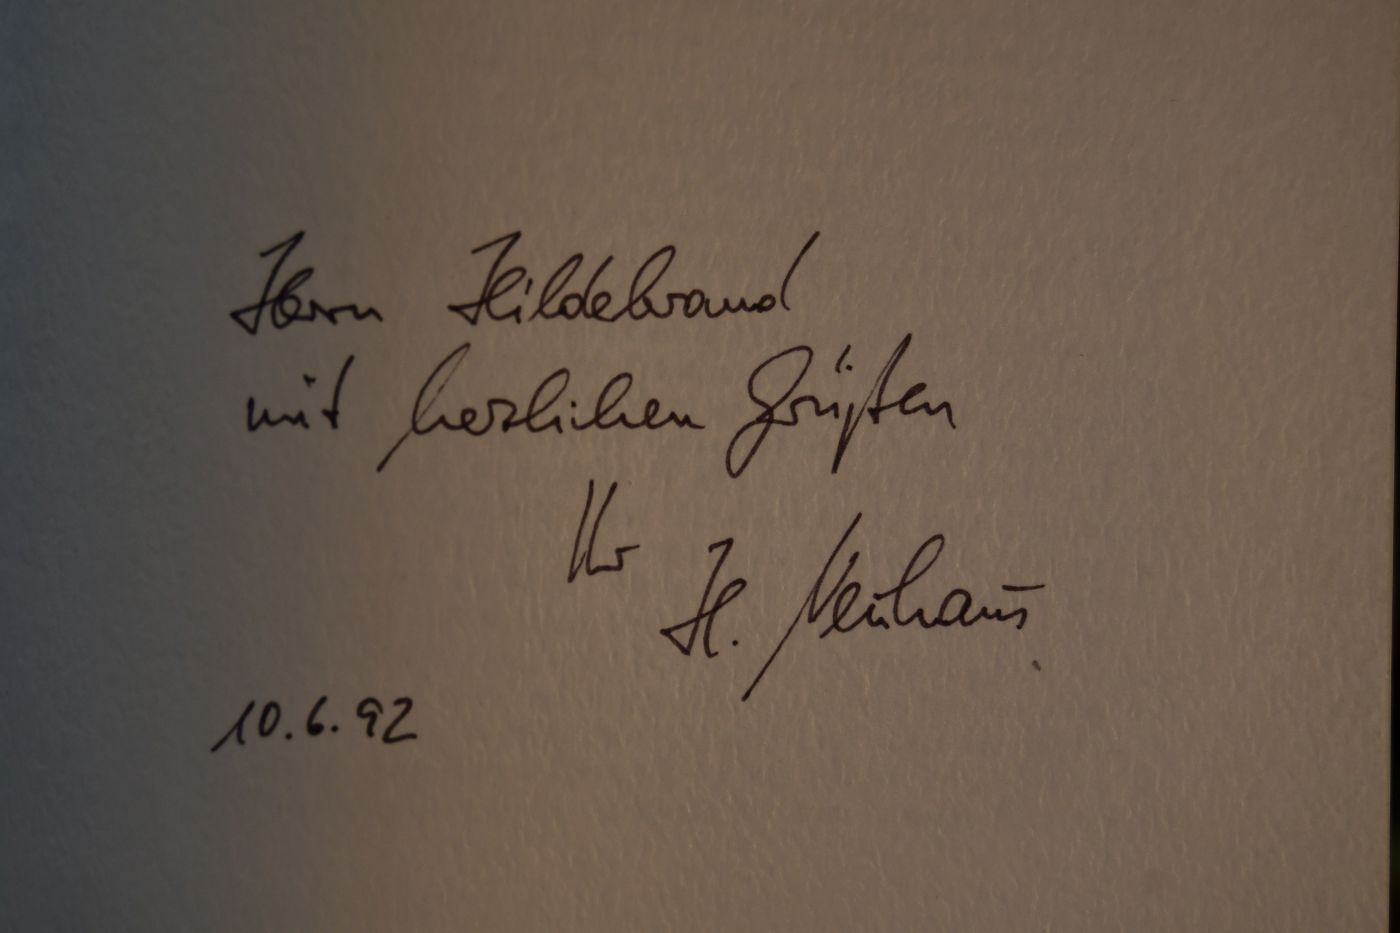 Herrn Hildebrand
mit herzlichen Grüßen
Ihr
H. Neuhaus
10.6.92